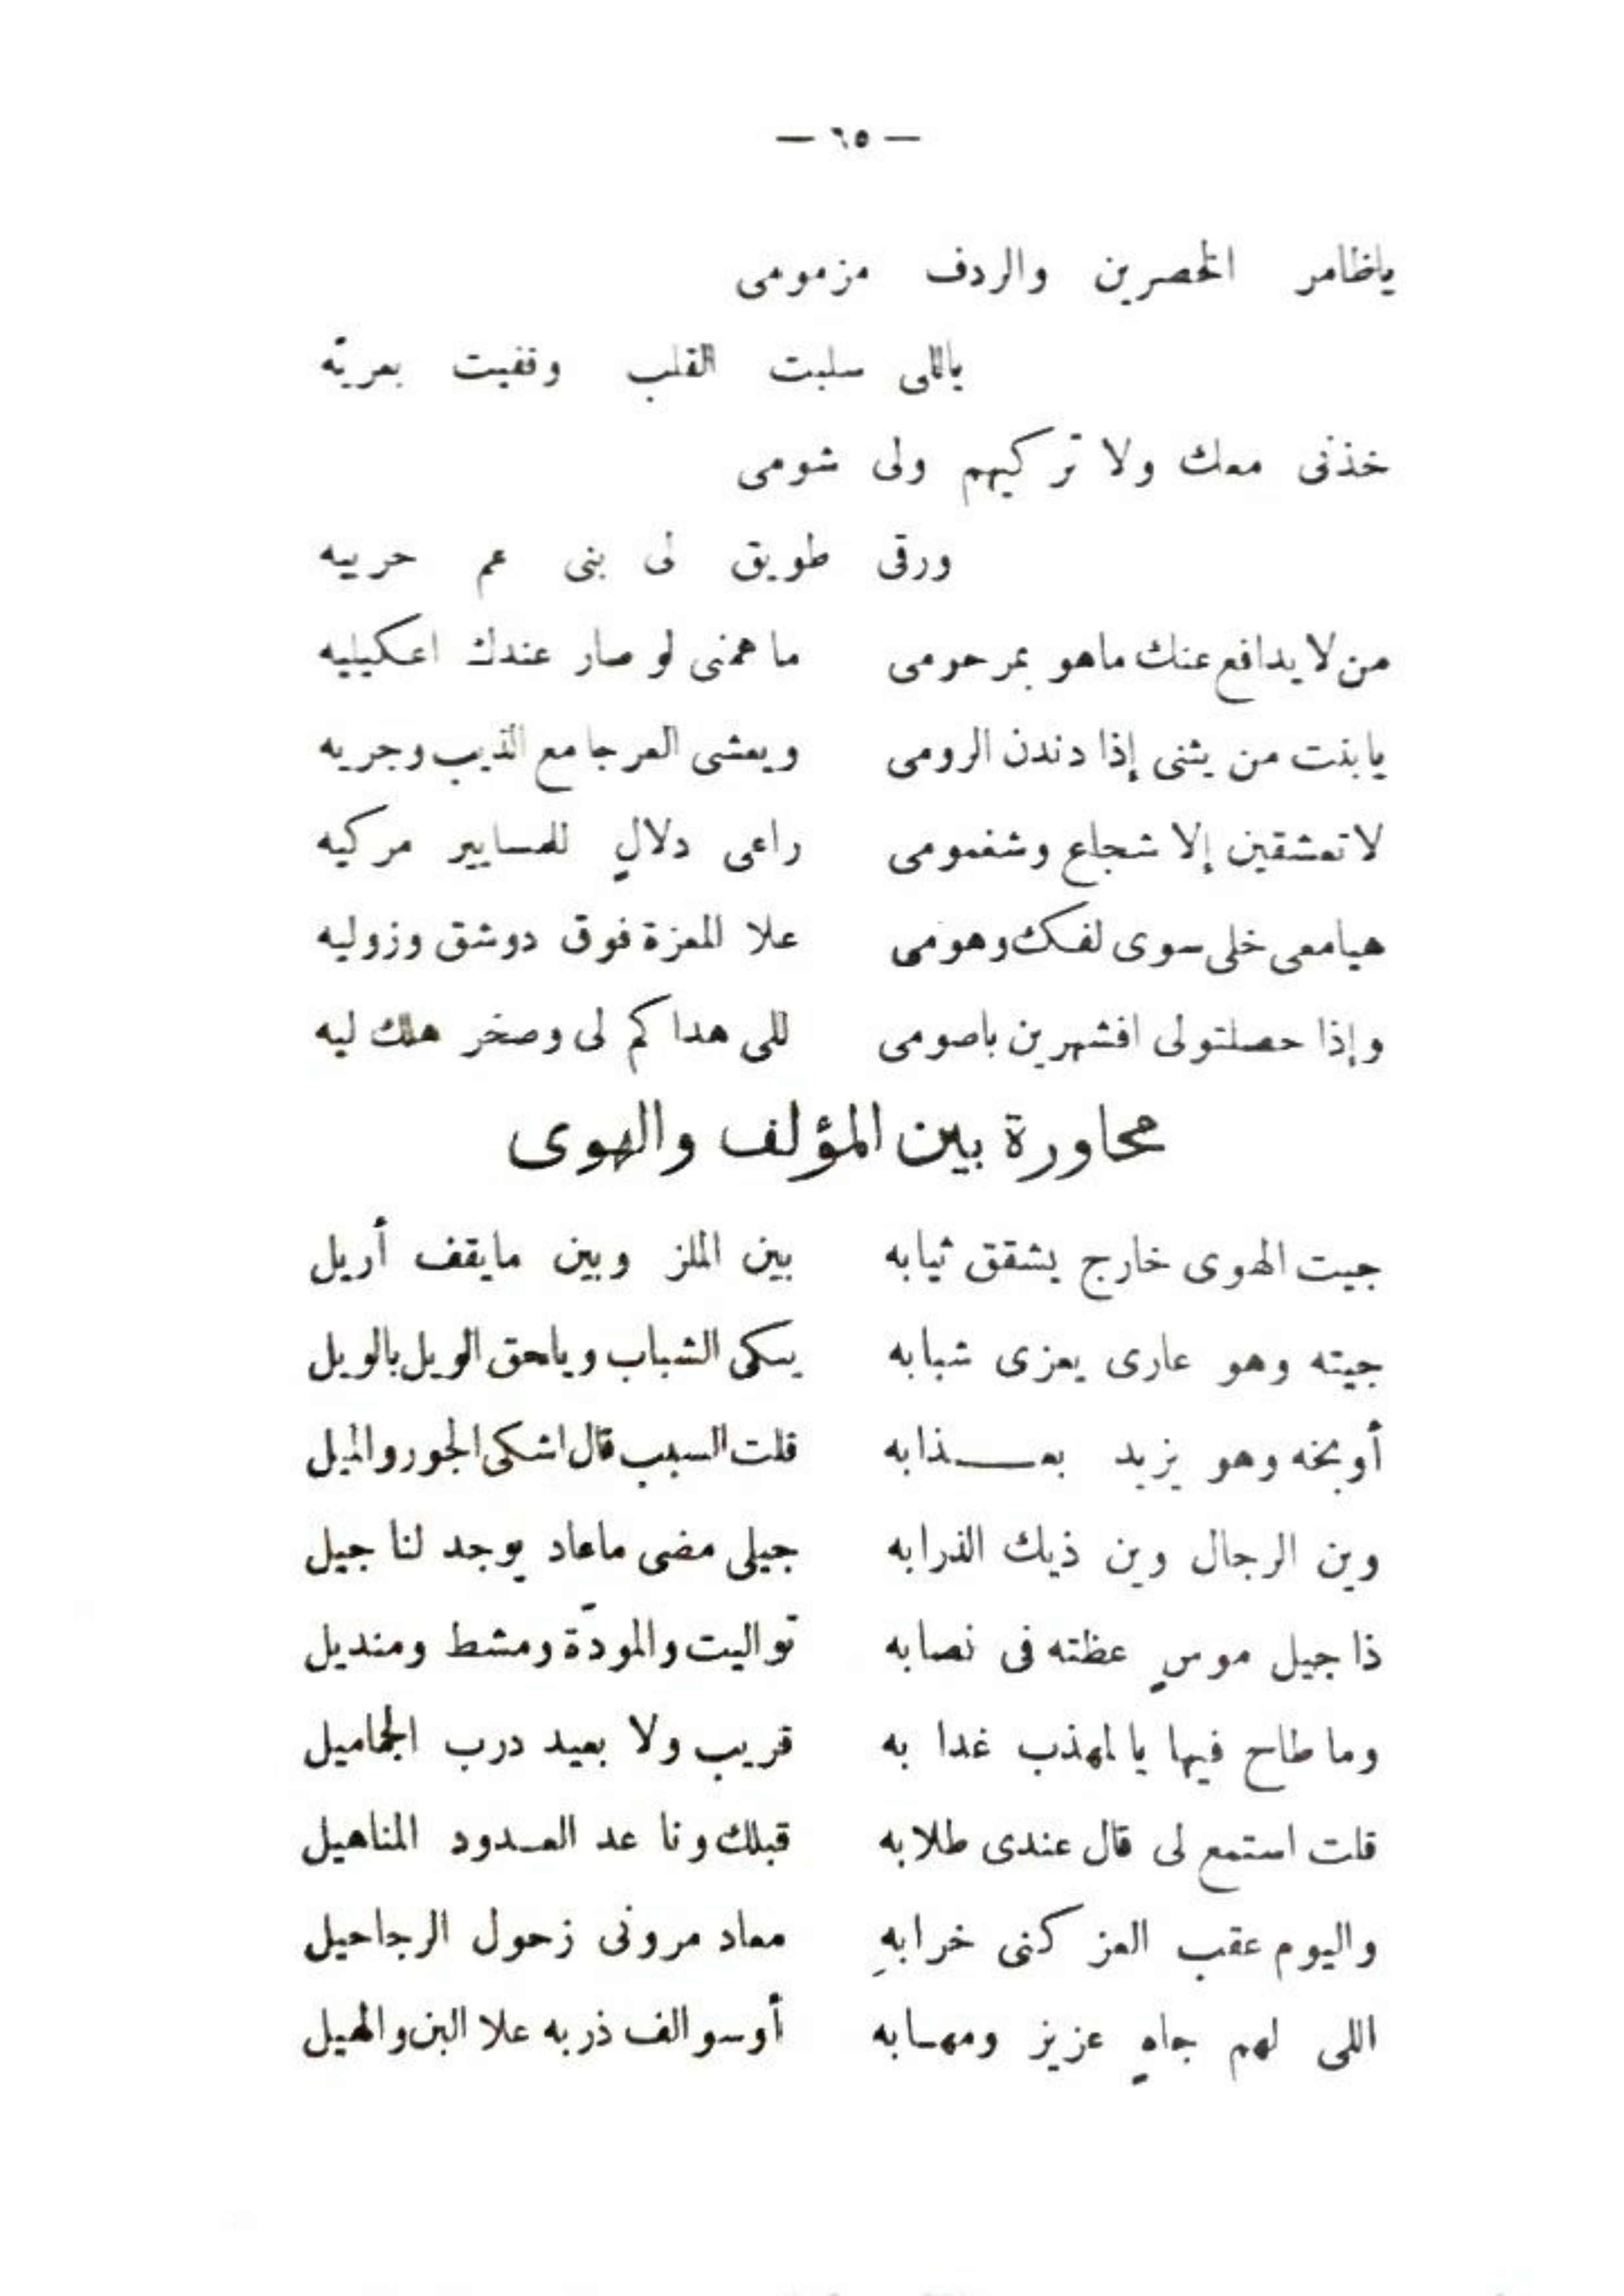 — ٦٥ —
ياظامر الخصرين والردف مزمومى
ياللى سلبت القلب وقفيت بعريّه
خذنى معك ولا تركيهم ولى شومى
ورقى طويق لى بنى عم حربيه
من لا يدافع عنك ماهو بمرحومى ما همنى لو صار عندك اعكيليه
يا بنت من يثنى إذا دندن الرومى ويعشى العرجا مع الذيب وجريه
لا تعشقين إلا شجاع وشغمومى راعى دلالٍ للمسايير مركيه
هيا معى خلى سوى لفك وهومى علا المعزة فوق دوشق وزوليه
وإذا حصلتولى افشهرين باصومى للى هداكم لى وصخر هلك ليه
محاورة بين المؤلف والهوى
جيت الهوى خارج يشقق ثيابه بين الملز وبين مايقف أريل
جيته وهو عارى يعزى شبابه يبكى الشباب ويلحق الويل بالويل
أوبخه وهو يزيد بعـــذابه قلت السبب قال اشكى الجور والميل
وين الرجال وين ذيك الذرابه جيلى مضى ماعاد يوجد لنا جيل
ذا جيل موسٍ عظته فى نصابه تواليت والمودَة ومشط ومنديل
وما طاح فيها يا لمهذب غدا به قريب ولا بعيد درب الجماميل
قلت استمع لى قال عندى طلابه قبلك ونا عد العـدود المناهيل
واليوم عقب العز كنى خرابهِ معاد مرونى زحول الرجاحيل
اللى لهم جاهٍ عزيز ومهابه أوسوالف ذربه علا البن والهيل